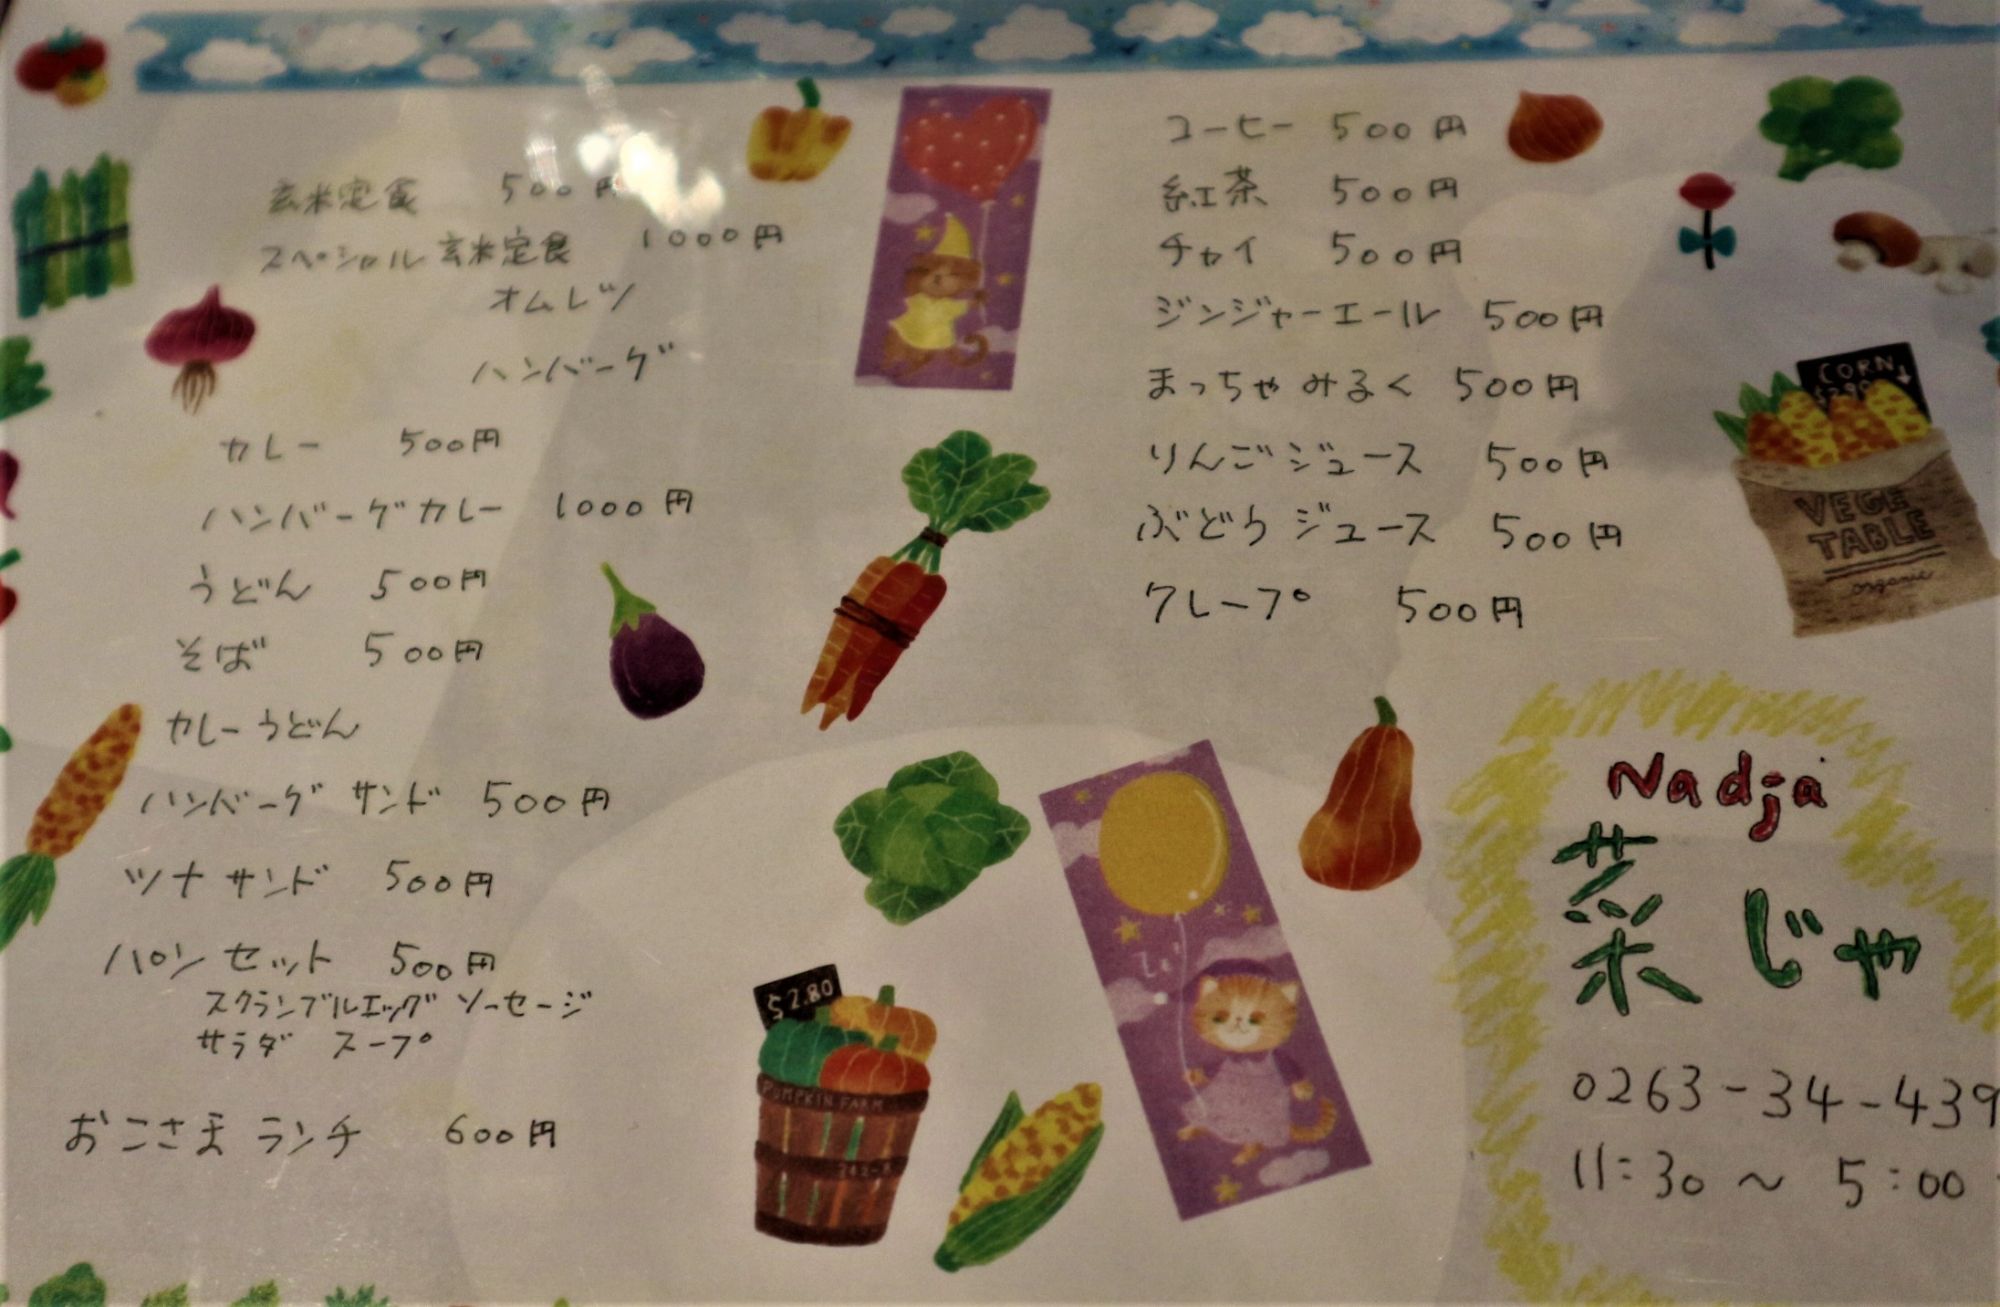 玄米定食 500円
スペシャル玄米定食 1000円
オムレツ
ハンバーグ
カレー 500円
ハンバーグカレー 1000円
うどん 500円
そば 500円
カレーうどん
ハンバーグ サンド 500円
ツナサンド 500円
パンセット 500円
スクランブルエッグ ソーセージ
サラダ スープ
おこさま ランチ 600円
コーヒー 500円
紅茶 500円
チャイ 500円
ジンジャーエール 500円
まっちゃみるく 500円
りんごジュース 500円
ぶどうジュース 500円
クレープ 500円
CORN
VEGE
TABLE
organic
$2.80
PUMPKIN FARM
Nadja
菜じゃ
0263-34-439
11:30～5:00